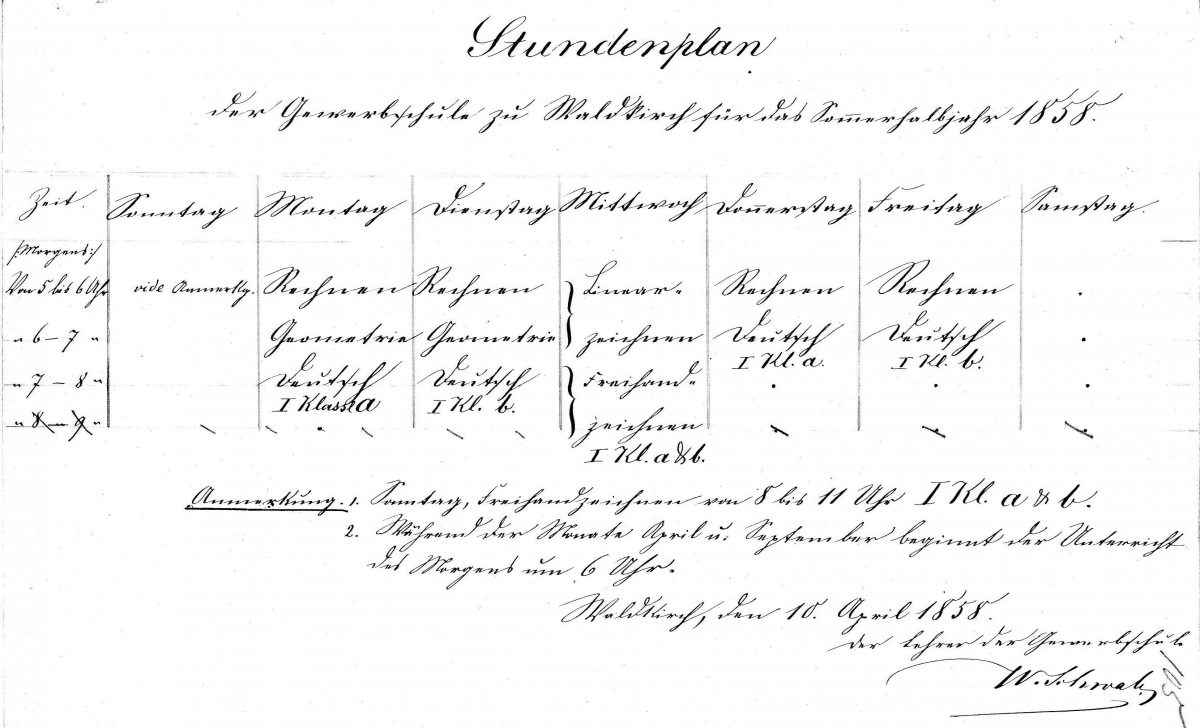 Stundenplan
der Gewerbschule zu Waldkirch für das Sommerhalbjahr 1858.
Zeit. Sonntag Montag Dienstag Mittwoch Donnerstag Freitag Samstag.
/:Morgens:/
Von 5 bis 6 Uhr vide Anmerkg. Rechnen Rechnen Linear- Rechnen Rechnen .
„ 6 – 7 „ Geometrie Geometrie zeichnen Deutsch Deutsch .
I Kl. a. I Kl. b.
„ 7 – 8 „ Deutsch Deutsch Freihand- . . .
I Klasse a I Kl. b.
„ 8 – 9 „ zeichnen
I Kl. a & b.
Anmerkung. 1. Sonntag, Freihandzeichnen von 8 bis 11 Uhr I Kl. a & b.
2. Während der Monate April u. September beginnt der Unterricht
des Morgens um 6 Uhr.
Waldkirch, den 10. April 1858.
der Lehrer der Gewerbschule
W. Schwab